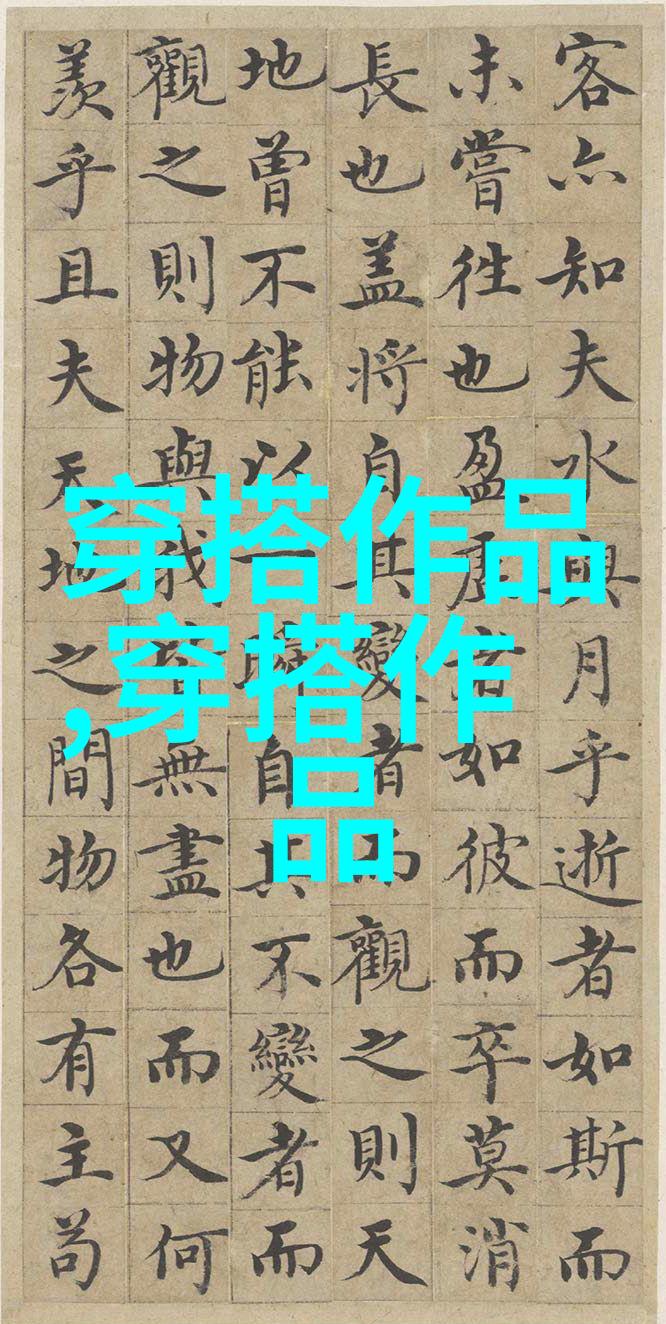 客亦知夫水與月乎逝者如斯而
未嘗往也盈虛者如彼而卒莫消
長也盖將自其變者而觀之則天
地曾不能以一瞬自其不變者而
觀之則物與我皆無盡也而又何
羨乎且夫天地之間物各有主苟
穿搭作品
,穿搭作
品